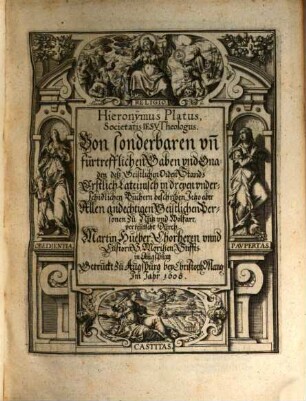 RELIGIO
Hieronymus Platus,
Societatis IESV Theologus.
Von sonderbaren vñ
fürtrefflichen Gaben vnd Gna
den deß Geistlichen Ordens Stands
Erstlich Lateinisch in dreyen vnder-
schidlichen Büchern beschriben, Jetzo aber
Allen andechtigen Geistlichen Per-
sonen zu Nutz vnd Wolfart
verteütscht Durch
Martin Hueber Chorherrn vnnd
Custorn S. Moritzen Stiffts
in Augspurg
Getruckt zu Augspurg bey Christoff Mang
Im Jahr 1606.
OBEDIENTIA.
PAVPERTAS.
CASTITAS.